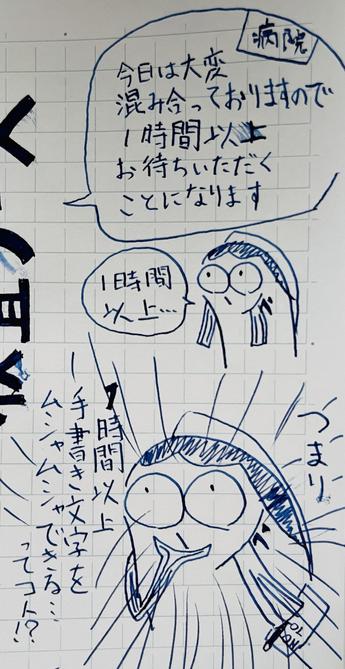 病院
今日は大変
混み合っておりますので
1時間以上
お待ちいただく
ことになります
1時間
以上…
つまり
1時間以上
手書き文字を
ムシャムシャできる…
ってコト!?